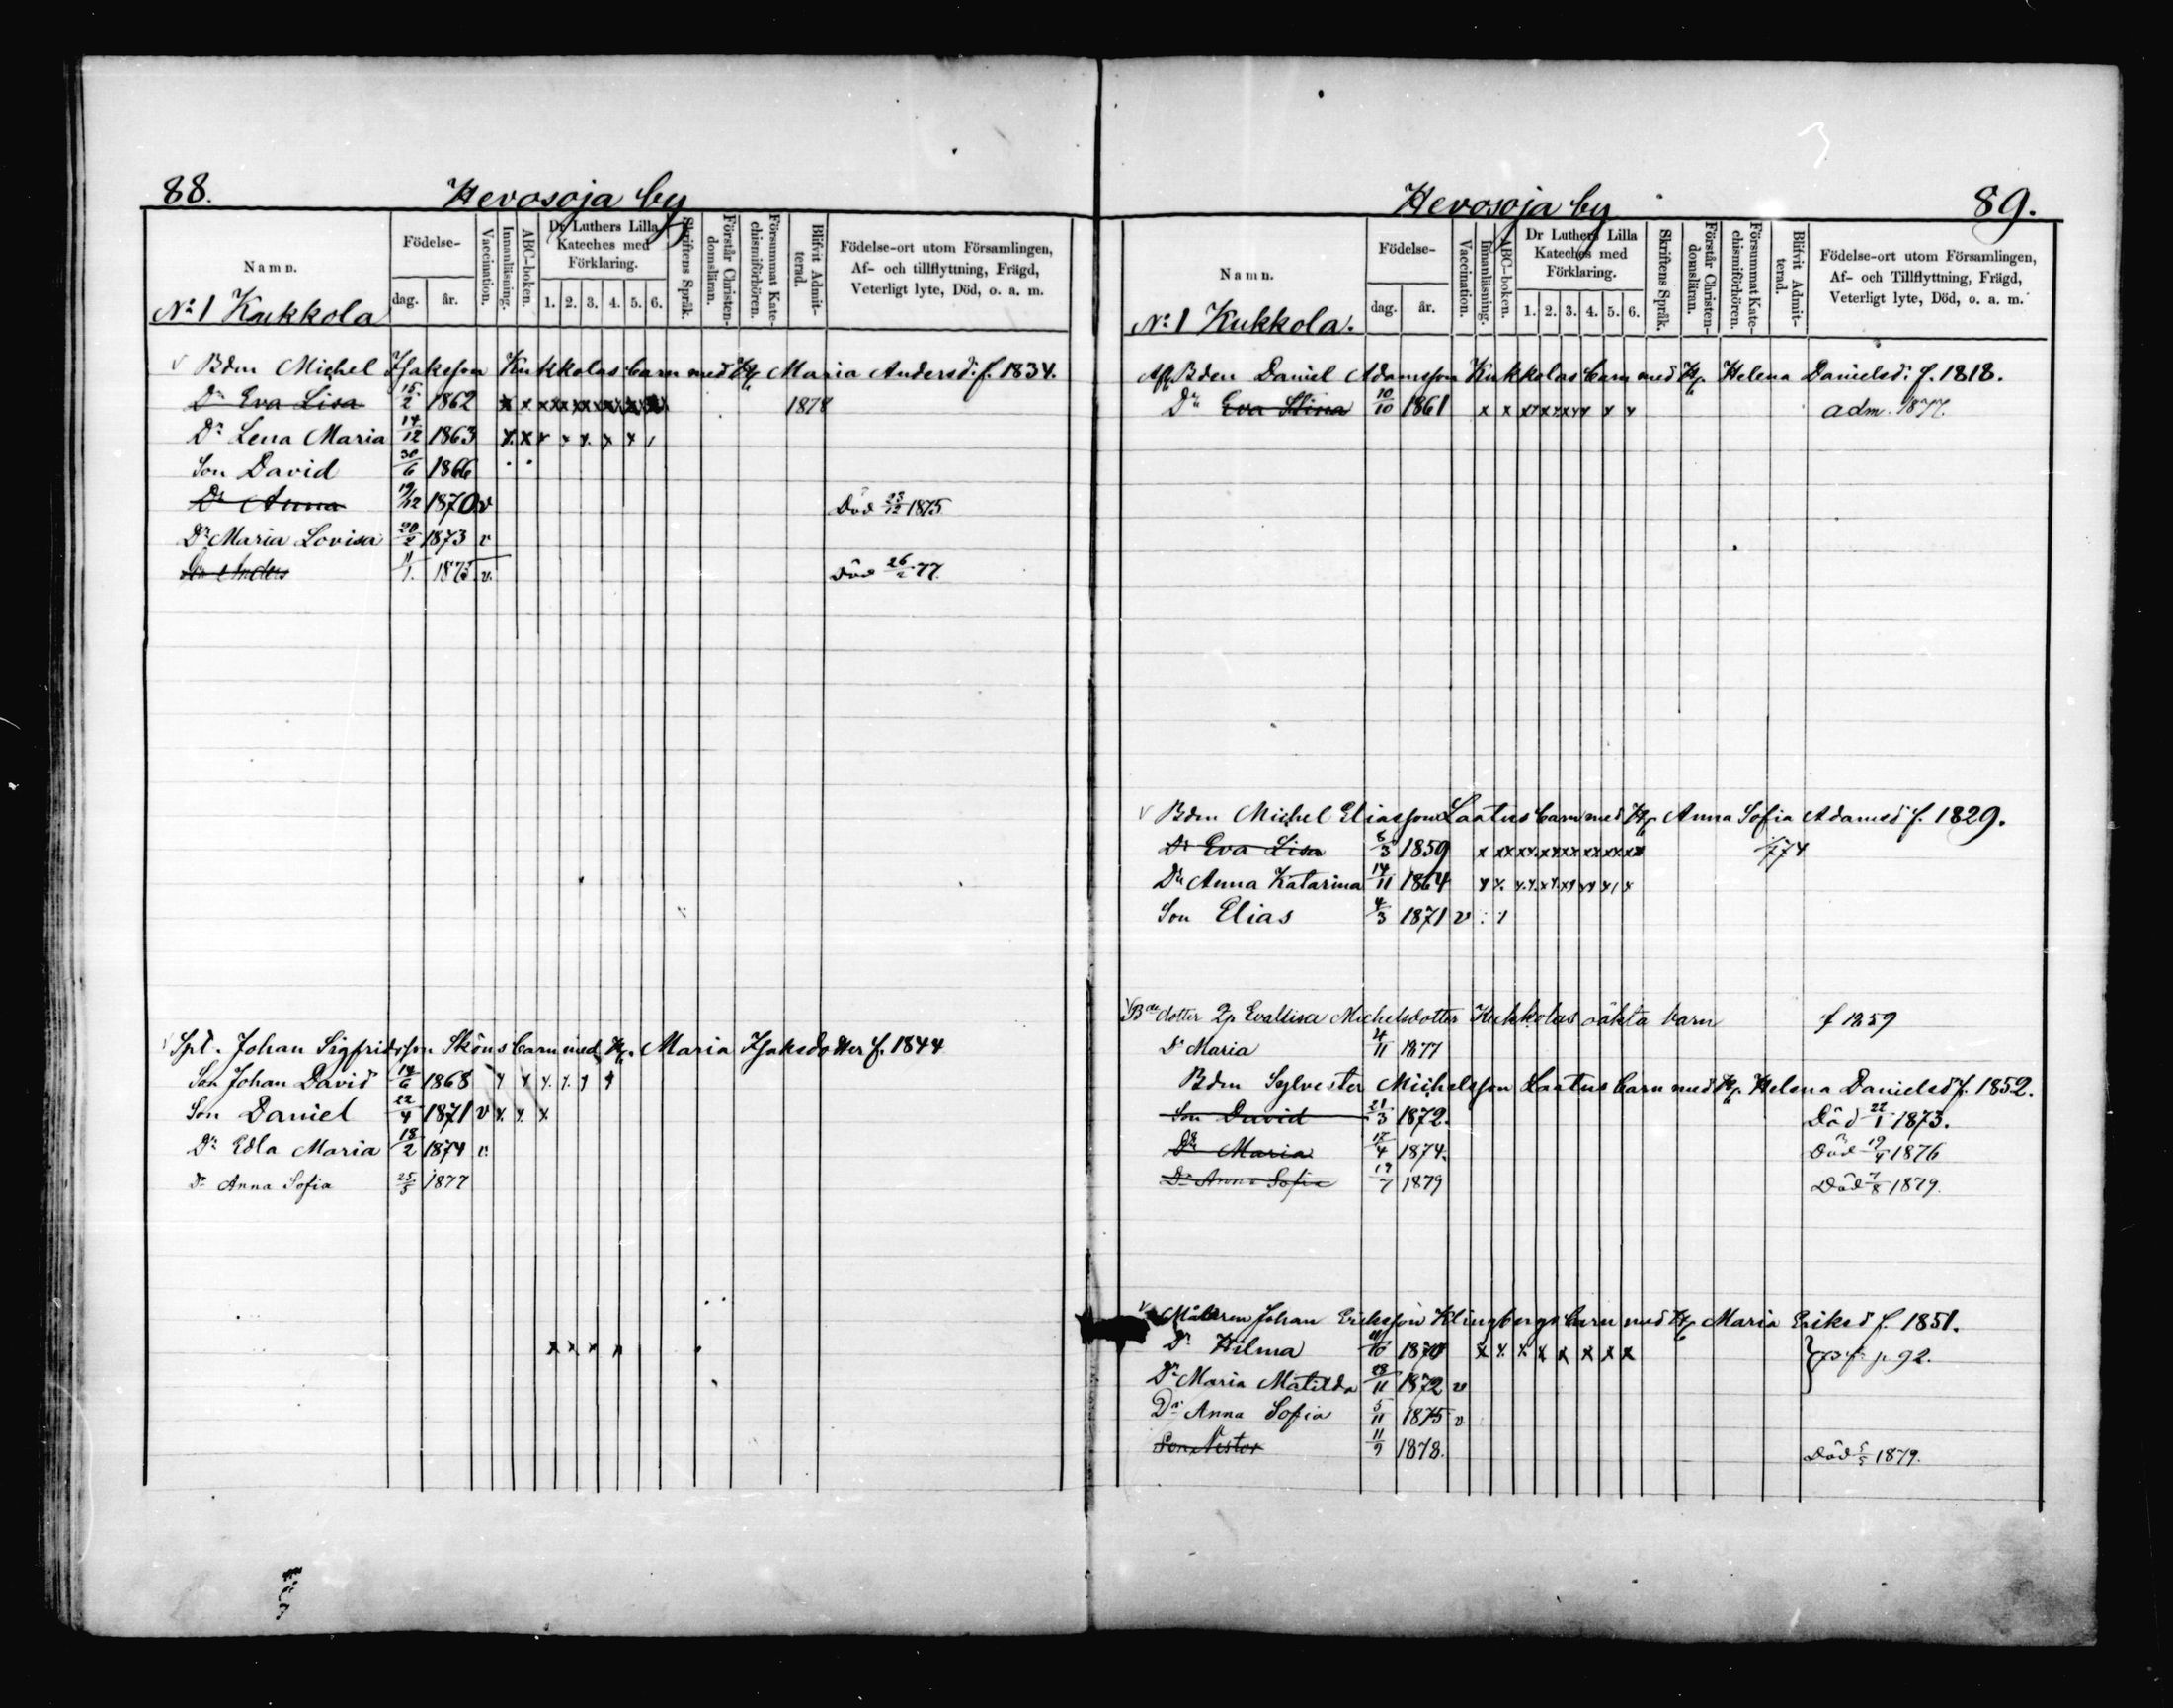 88. Hevosoja by
Namn. Födelse- dag. år. Vaccination. Innanläsning. ABC-boken. Dr Luthers Lilla Kateches med Förklaring. 1. 2. 3. 4. 5. 6. Skriftens Språk. Förstår Christendomsläran. Försummat Katechismiförhören. Blifvit Admitterad. Födelse-ort utom Församlingen, Af- och tillflyttning, Frägd, Veterligt lyte, Död, o. a. m.
No 1 Kukkola
v Bdm Michel Isaksson Kukkolas barn med H. Maria Andersd: f. 1834.
Dr Eva Lisa 15/2 1862 x x xx xx xx xx xx 1878
Dr Lena Maria 14/12 1863 x x x x x x x 1
Son David 30/6 1866
Dr Anna 19/12 1870 v Död 23/12 1875
Dr Maria Lovisa 20/2 1873 v
Son Anders 11/1. 1875 v. Död 26/2 77.
v Spt. Johan Sigfridsson Sköns barn med H. Maria Isaksdotter f. 1844
Son Johan David 14/6 1868 x x x x x x
Son Daniel 22/4 1871 v x x x
Dr Edla Maria 18/2 1874 v.
Dr Anna Sofia 25/5 1877
x x x x
Hevosoja by 89.
Namn. Födelse- dag. år. Vaccination. Innanläsning. ABC-boken. Dr Luthers Lilla Kateches med Förklaring. 1. 2. 3. 4. 5. 6. Skriftens Språk. Förstår Christendomsläran. Försummat Katechismiförhören. Blifvit Admitterad. Födelse-ort utom Församlingen, Af- och Tillflyttning, Frägd, Veterligt lyte, Död, o. a. m.
No 1 Kukkola.
Afl. Bden Daniel Adamsson Kukkolas barn med H. Helena Danielsd: f. 1818.
Dr Eva Stina 10/10 1861 x x xx xx xx x x adm. 1877.
v Bdm Michel Eliasson Laatus barn med H. Anna Sofia Adamsd f. 1829.
Dr Eva Lisa 8/3 1859 x xx xx xx xx xx xx xx /74
Dr Anna Katarina 14/11 1864 x x xx xx xx xx x1 x
Son Elias 4/3 1871 v : 1
v Bdedotter Qp Evalisa Michelsdotter Kukkolas oäkta barn f 1859
Dr Maria 4/11 1877
Bdm Sylvester Michelsson Laatus barn med H. Helena Danielsd f. 1852.
Son David 21/3 1872. Död 22/1 1873.
Dr Maria 17/4 1874. Död 19/4 1876
Dr Anna Sofia 19/7 1879 Död 7/8 1879.
v Målaren Johan Eriksson Klingbergs barn med H. Maria Eriksd f. 1851.
Dr Hilma /10 1870 x x x x x x x x } p. 92.
Dr Maria Matilda 28/11 1872 v
Dr Anna Sofia 5/11 1875 v
Son Nestor 11/9 1878. Död 5/5 1879.